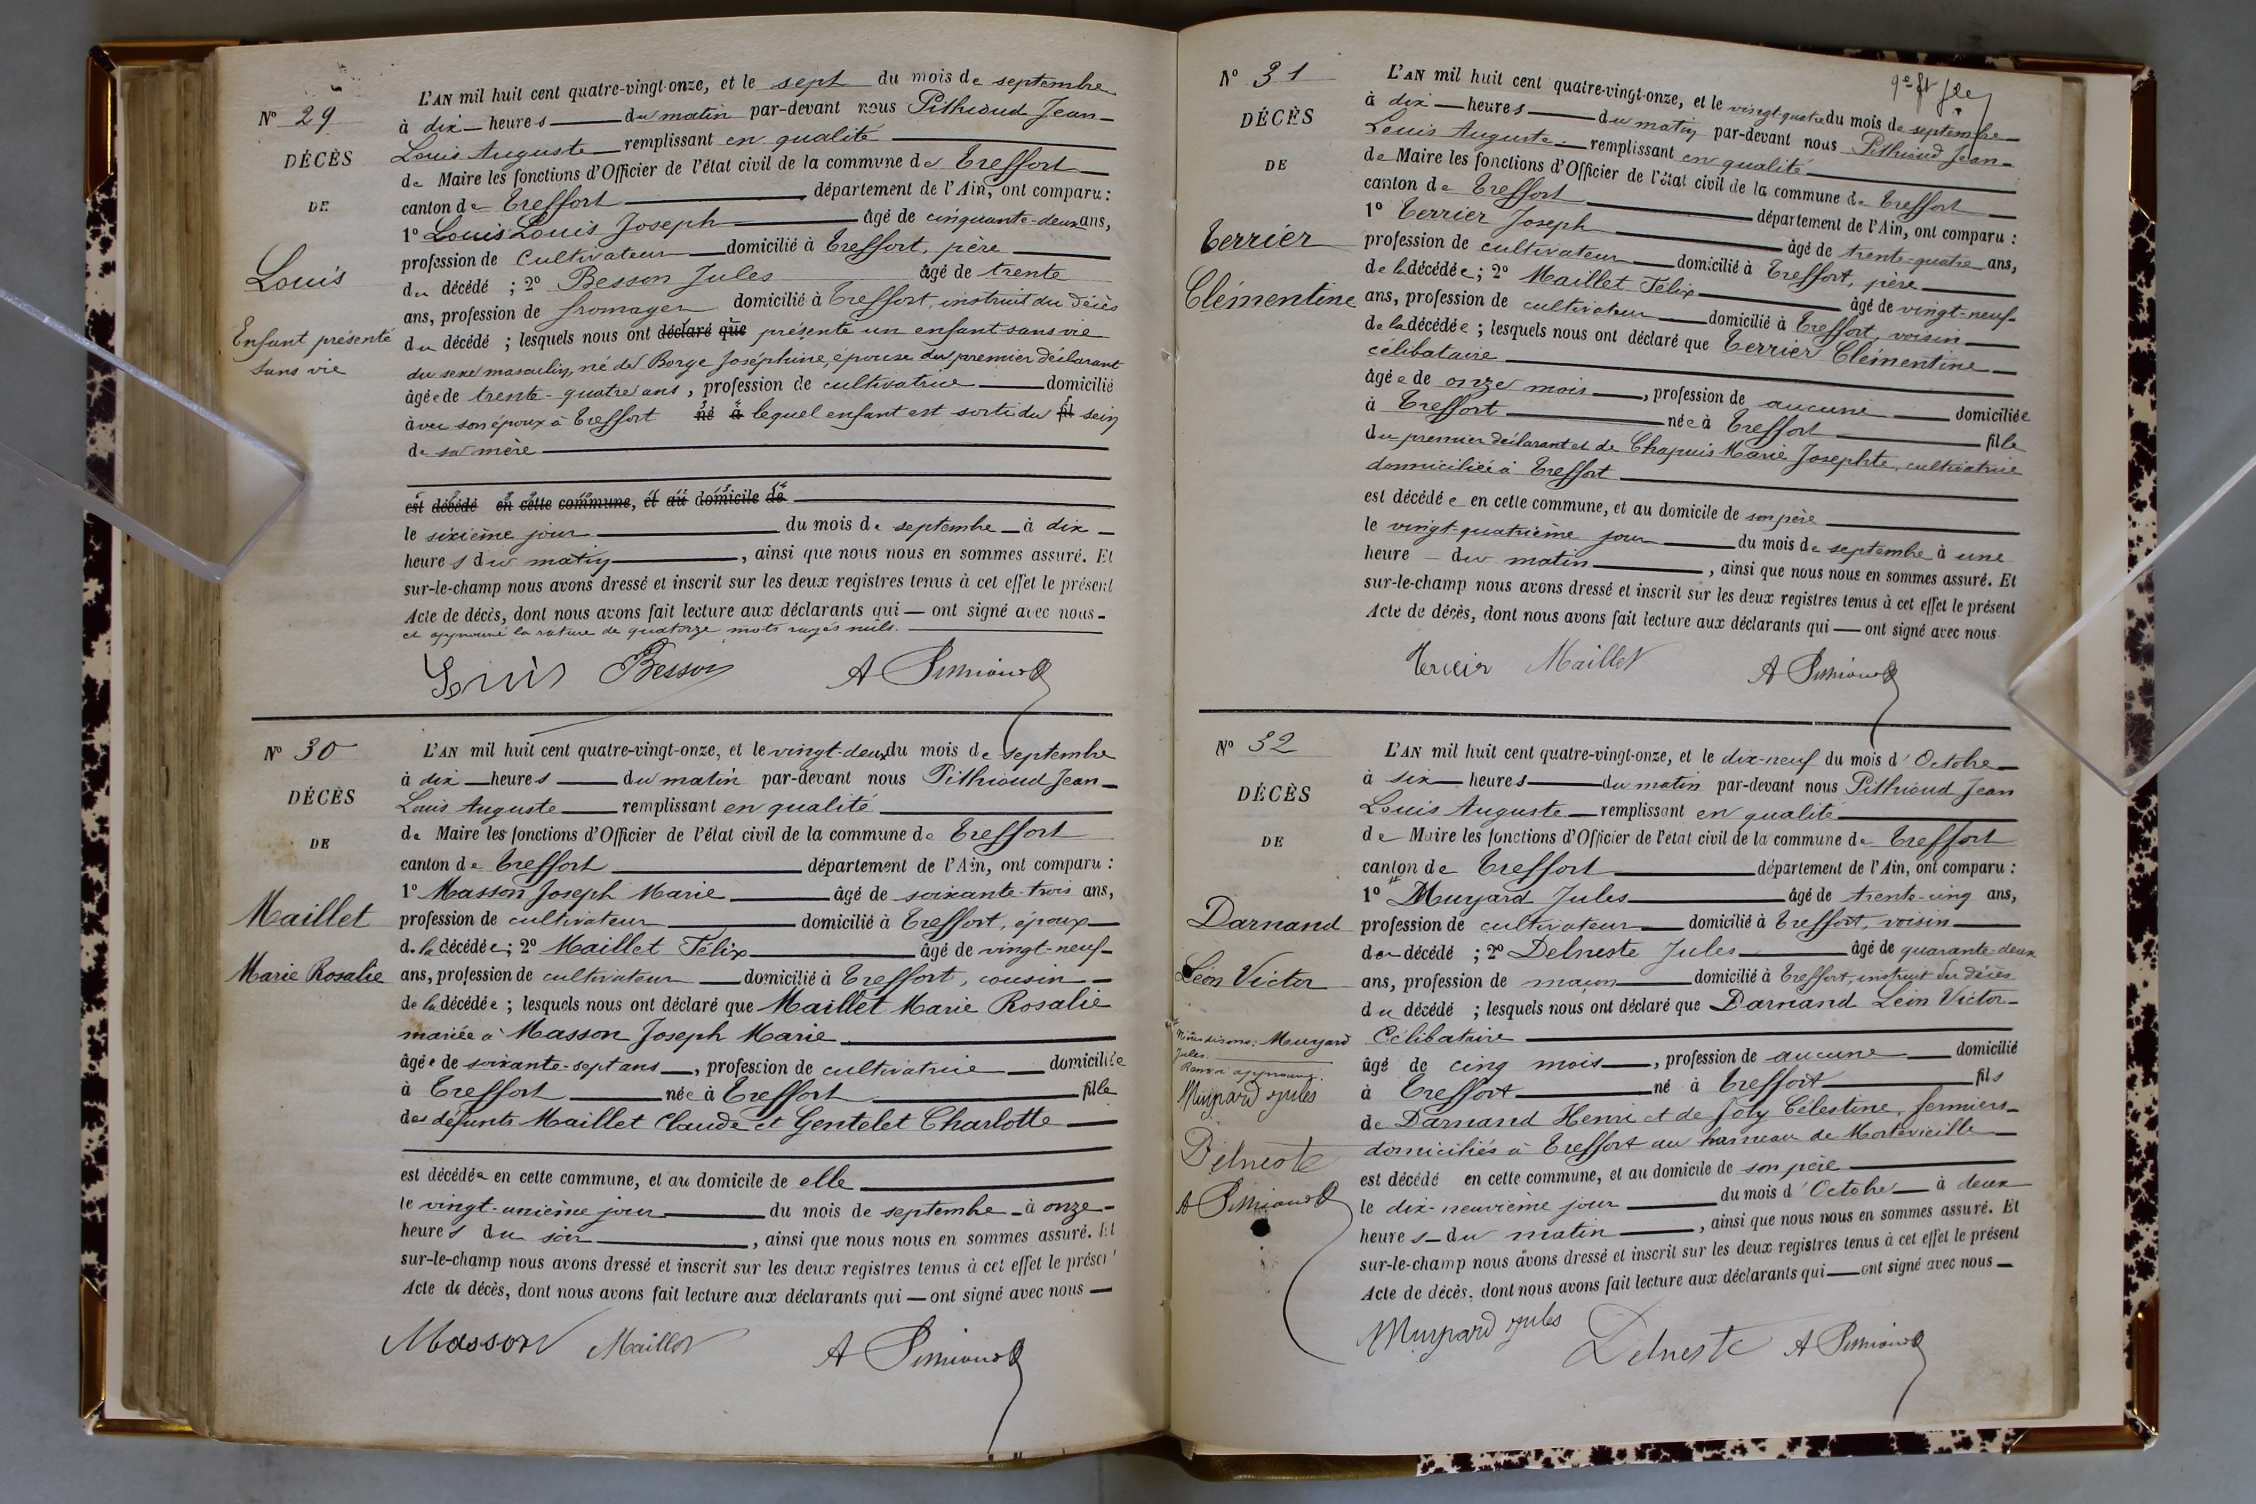 N° 29
DÉCÈS
DE
Louis
Enfant présenté
sans vie
L'AN mil huit cent quatre-vingt-onze, et le sept du mois de septembre
à dix heures du matin par-devant nous Pithioud Jean-
Louis Auguste remplissant en qualité
de Maire les fonctions d'Officier de l'état civil de la commune de Treffort
canton de Treffort département de l'Ain, ont comparu :
1° Louis Louis Joseph âgé de cinquante-deux ans,
profession de cultivateur domicilié à Treffort, père
du décédé ; 2° Besson Jules âgé de trente
ans, profession de fromager domicilié à Treffort, instruit du décès
du décédé ; lesquels nous ont déclaré que présenté un enfant sans vie
du sexe masculin, né de Borge Joséphine, épouse du premier déclarant
âgée de trente-quatre ans, profession de cultivatrice domicilié
avec son époux à Treffort né à lequel enfant est sorti du fil sein
de sa mère
est décédé en cette commune, et au domicile de
le sixième jour du mois de septembre à dix
heures du matin, ainsi que nous nous en sommes assuré. Et
sur-le-champ nous avons dressé et inscrit sur les deux registres tenus à cet effet le présent
Acte de décès, dont nous avons fait lecture aux déclarants qui ont signé avec nous
et approuvé la rature de quatorze mots rayés nuls.
Louis Besson A Pithioud
N° 30
DÉCÈS
DE
Maillet
Marie Rosalie
L'AN mil huit cent quatre-vingt-onze, et le vingt-deux du mois de septembre
à dix heures du matin par-devant nous Pithioud Jean-
Louis Auguste remplissant en qualité
de Maire les fonctions d'Officier de l'état civil de la commune de Treffort
canton de Treffort département de l'Ain, ont comparu :
1° Masson Joseph Marie âgé de soixante-trois ans,
profession de cultivateur domicilié à Treffort, époux
de la décédée ; 2° Maillet Félix âgé de vingt-neuf
ans, profession de cultivateur domicilié à Treffort, cousin
de la décédée ; lesquels nous ont déclaré que Maillet Marie Rosalie
mariée à Masson Joseph Marie
âgée de soixante-sept ans, profession de cultivatrice domiciliée
à Treffort née à Treffort fille
des défunts Maillet Claude et Gentelet Charlotte
est décédée en cette commune, et au domicile de elle
le vingt-unième jour du mois de septembre à onze
heures du soir, ainsi que nous nous en sommes assuré. Et
sur-le-champ nous avons dressé et inscrit sur les deux registres tenus à cet effet le présent
Acte de décès, dont nous avons fait lecture aux déclarants qui ont signé avec nous
Masson Maillet A Pithioud
N° 31
DÉCÈS
DE
Terrier
Clémentine
L'AN mil huit cent quatre-vingt-onze, et le vingt-quatre du mois de septembre
à dix heures du matin par-devant nous Pithioud Jean-
Louis Auguste remplissant en qualité
de Maire les fonctions d'Officier de l'état civil de la commune de Treffort
canton de Treffort département de l'Ain, ont comparu :
1° Terrier Joseph âgé de trente-quatre ans,
profession de cultivateur domicilié à Treffort, père
de la décédée ; 2° Maillet Félix âgé de vingt-neuf
ans, profession de cultivateur domicilié à Treffort, voisin
de la décédée ; lesquels nous ont déclaré que Terrier Clémentine
célibataire
âgée de onze mois, profession de aucune domiciliée
à Treffort née à Treffort fille
du premier déclarant et de Chapuis Marie Josephte, cultivatrice
domiciliée à Treffort
est décédée en cette commune, et au domicile de son père
le vingt-quatrième jour du mois de septembre à une
heure du matin, ainsi que nous nous en sommes assuré. Et
sur-le-champ nous avons dressé et inscrit sur les deux registres tenus à cet effet le présent
Acte de décès, dont nous avons fait lecture aux déclarants qui ont signé avec nous
Terrier Maillet A Pithioud
N° 32
DÉCÈS
DE
Darnand
Léon Victor
Nous disons : Muyard
Jules.
Renvoi approuvé.
Muyard Jules
Delneste
A Pithioud
L'AN mil huit cent quatre-vingt-onze, et le dix-neuf du mois d'Octobre
à six heures du matin par-devant nous Pithioud Jean
Louis Auguste remplissant en qualité
de Maire les fonctions d'Officier de l'état civil de la commune de Treffort
canton de Treffort département de l'Ain, ont comparu :
1° Muyard Jules âgé de trente-cinq ans,
profession de cultivateur domicilié à Treffort, voisin
du décédé ; 2° Delneste Jules âgé de quarante-deux
ans, profession de maçon domicilié à Treffort, instruit du décès
du décédé ; lesquels nous ont déclaré que Darnand Léon Victor
Célibataire
âgé de cinq mois, profession de aucune domicilié
à Treffort né à Treffort fils
de Darnand Henri et de Joly Célestine, fermiers
domiciliés à Treffort au hameau de Mortevieille
est décédé en cette commune, et au domicile de son père
le dix-neuvième jour du mois d'Octobre à deux
heures du matin, ainsi que nous nous en sommes assuré. Et
sur-le-champ nous avons dressé et inscrit sur les deux registres tenus à cet effet le présent
Acte de décès, dont nous avons fait lecture aux déclarants qui ont signé avec nous
Muyard Jules Delneste A Pithioud